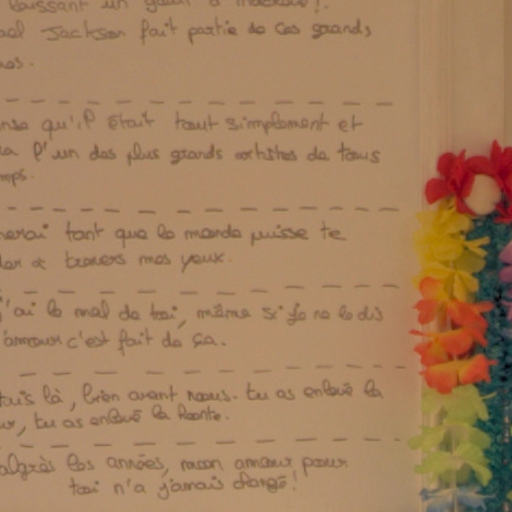 laissant un goût d'inachevé !.
Jackson fait partie de ces grands
qu'il était tout simplement et
l'un des plus grands artistes de tous
tant que le monde puisse te
à travers mes yeux.
j'ai le mal de toi, même si je ne le dis
l'amour c'est fait de ça.
là, bien avant nous. tu as enlevé la
tu as enlevé la honte.
les années, mon amour pour
toi n'a jamais changé !